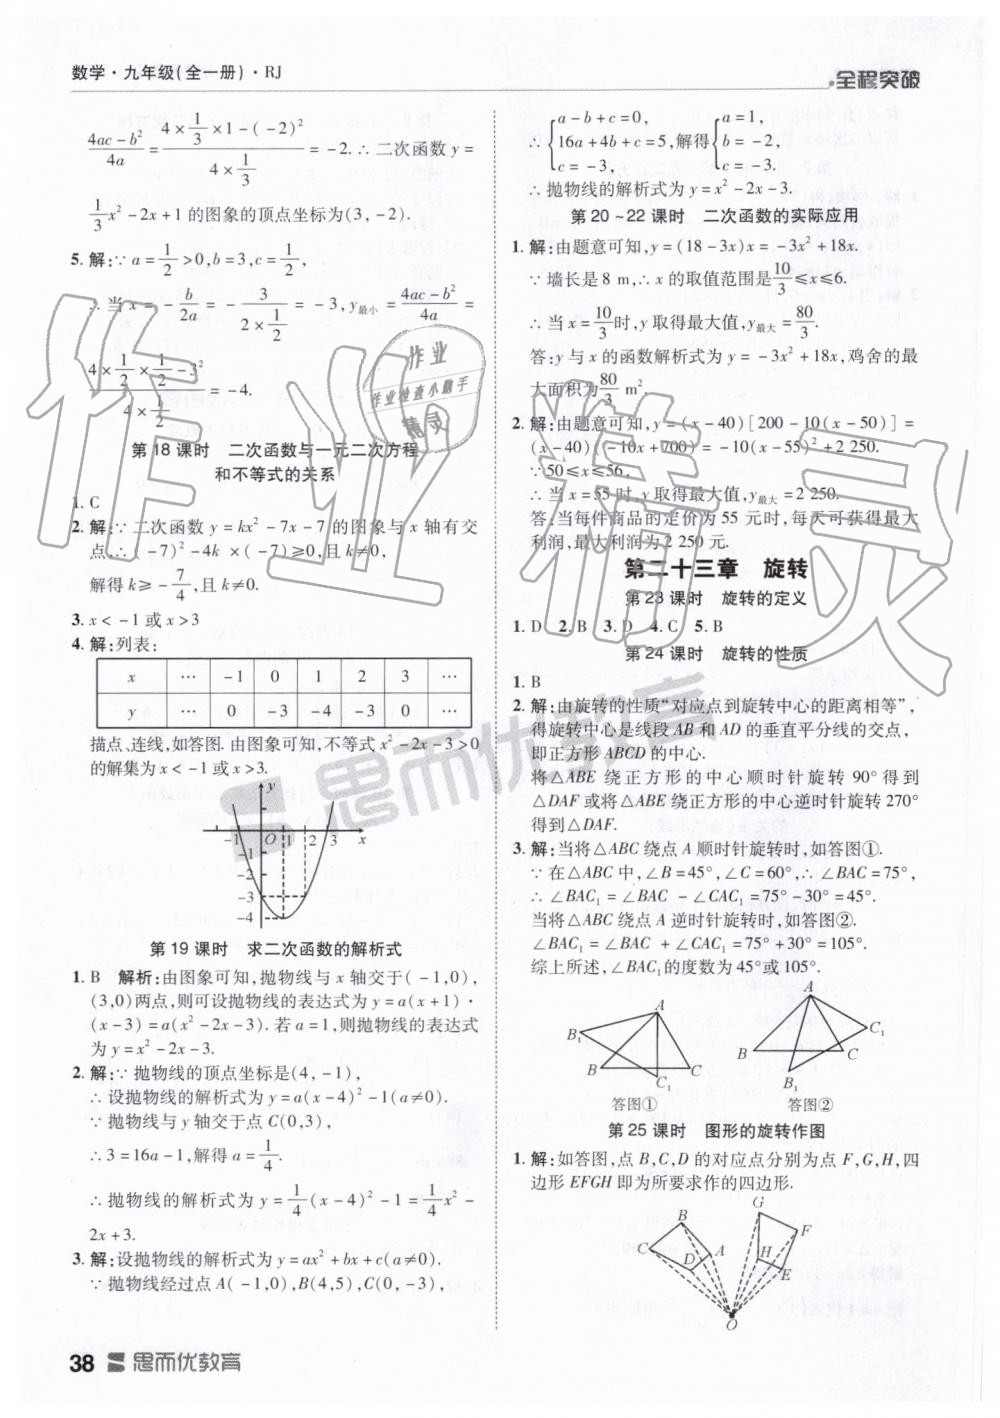 数学·九年级(全一册)·RJ
全程突破
\frac{4ac-b^2}{4a}=\frac{4×\frac{1}{3}×1-(-2)^2}{4×\frac{1}{3}}=-2.∴二次函数y=
\frac{1}{3}x^2-2x+1的图象的顶点坐标为(3,-2).
5.解:∵a=\frac{1}{2}>0,b=3,c=\frac{1}{2},
∴当x=-\frac{b}{2a}=-\frac{3}{2×\frac{1}{2}}=-3,y最小=\frac{4ac-b^2}{4a}=
\frac{4×\frac{1}{2}×\frac{1}{2}-3^2}{4×\frac{1}{2}}=-4.
第18课时 二次函数与一元二次方程
和不等式的关系
1.C
2.解:∵二次函数y=kx^2-7x-7的图象与x轴有交
点,∴(-7)^2-4k×(-7)≥0,且k≠0,
解得k≥-\frac{7}{4},且k≠0.
3.x<-1或x>3
4.解:列表:
x … -1 0 1 2 3 …
y … 0 -3 -4 -3 0 …
描点、连线,如答图.由图象可知,不等式x^2-2x-3>0
的解集为x<-1或x>3.
y
-1 O 1 2 3 x
-1
-2
-3
-4
第19课时 求二次函数的解析式
1.B 解析:由图象可知,抛物线与x轴交于(-1,0),
(3,0)两点,则可设抛物线的表达式为y=a(x+1)·
(x-3)=a(x^2-2x-3).若a=1,则抛物线的表达式
为y=x^2-2x-3.
2.解:∵抛物线的顶点坐标是(4,-1),
∴设抛物线的解析式为y=a(x-4)^2-1(a≠0).
∵抛物线与y轴交于点C(0,3),
∴3=16a-1,解得a=\frac{1}{4}.
∴抛物线的解析式为y=\frac{1}{4}(x-4)^2-1=\frac{1}{4}x^2-
2x+3.
3.解:设抛物线的解析式为y=ax^2+bx+c(a≠0).
∵抛物线经过点A(-1,0),B(4,5),C(0,-3),
∴{a-b+c=0, 16a+4b+c=5, c=-3, 解得{a=1, b=-2, c=-3.
∴抛物线的解析式为y=x^2-2x-3.
第20~22课时 二次函数的实际应用
1.解:由题意可知,y=(18-3x)x=-3x^2+18x.
∵墙长是8 m,∴x的取值范围是\frac{10}{3}≤x≤6.
∴当x=\frac{10}{3}时,y取得最大值,y最大=\frac{80}{3}.
答:y与x的函数解析式为y=-3x^2+18x,鸡舍的最
大面积为\frac{80}{3} m^2.
2.解:由题意可知,y=(x-40)[200-10(x-50)]=
(x-40)(-10x+700)=-10(x-55)^2+2 250.
∵50≤x≤56,
∴当x=55时,y取得最大值,y最大=2 250.
答:当每件商品的定价为55元时,每天可获得最大
利润,最大利润为2 250元.
第二十三章 旋转
第23课时 旋转的定义
1.D 2.B 3.D 4.C 5.B
第24课时 旋转的性质
1.B
2.解:由旋转的性质“对应点到旋转中心的距离相等”,
得旋转中心是线段AB和AD的垂直平分线的交点,
即正方形ABCD的中心.
将△ABE绕正方形的中心顺时针旋转90°得到
△DAF或将△ABE绕正方形的中心逆时针旋转270°
得到△DAF.
3.解:当将△ABC绕点A顺时针旋转时,如答图①.
∵在△ABC中,∠B=45°,∠C=60°,∴∠BAC=75°,
∴∠BAC₁=∠BAC-∠CAC₁=75°-30°=45°.
当将△ABC绕点A逆时针旋转时,如答图②.
∠BAC₁=∠BAC+∠CAC₁=75°+30°=105°.
综上所述,∠BAC₁的度数为45°或105°.
A
B₁
B C
C₁
答图①
A
C₁
B C
B₁
答图②
第25课时 图形的旋转作图
1.解:如答图,点B,C,D的对应点分别为点F,G,H,四
边形EFGH即为所要求作的四边形.
G
B F
C D A H E
O
38 思而优教育
作业精灵
作业
作业检查小助手
精灵
思而优教育